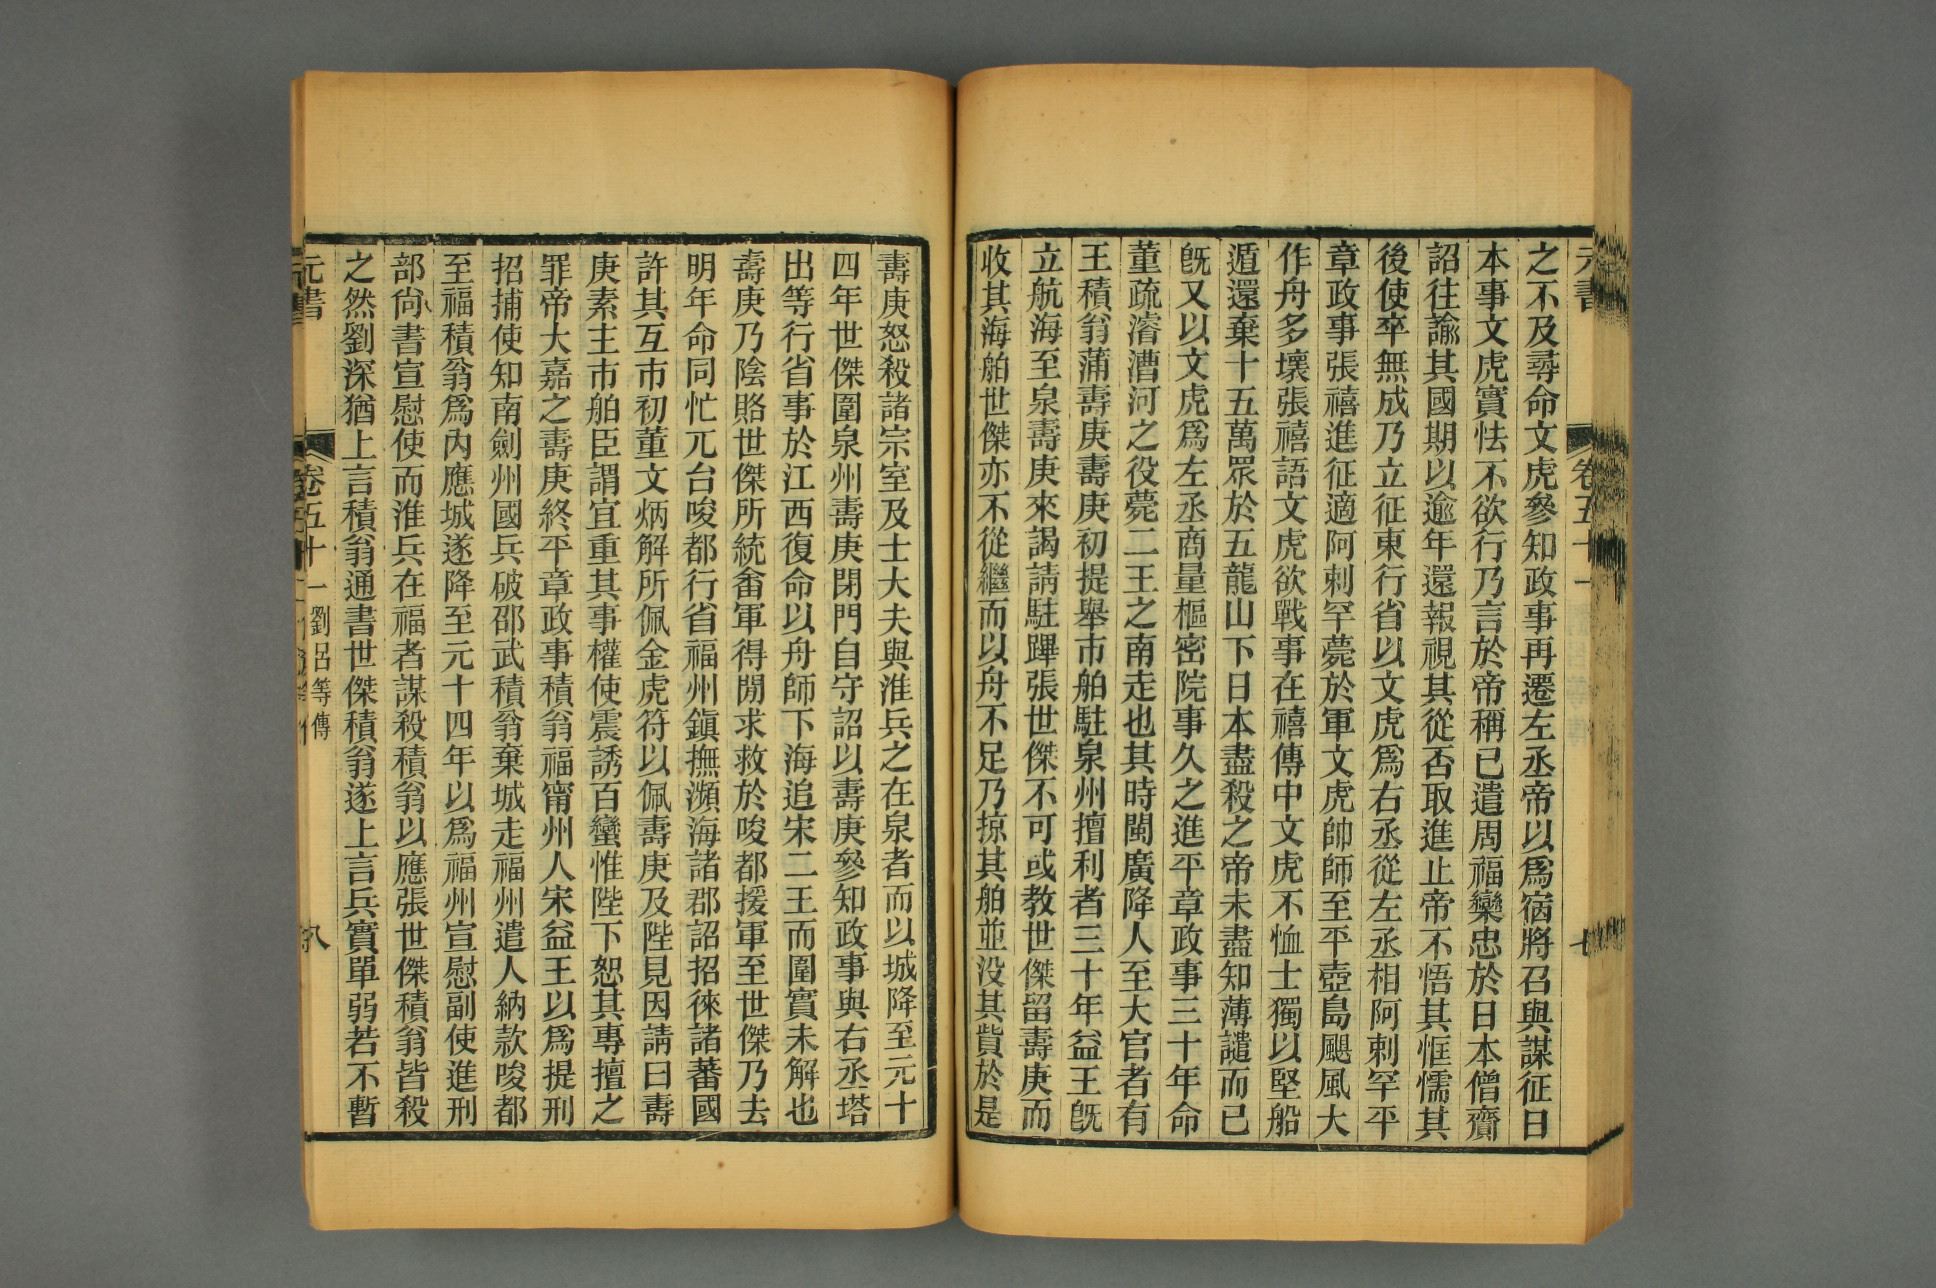 元書
卷五十一
七
之不及尋命文虎參知政事再遷左丞帝以爲宿將召與謀征日
本事文虎實怯不欲行乃言於帝稱已遣周福欒忠於日本僧齎
詔往諭其國期以逾年還報視其從否取進止帝不悟其恇懦其
後使卒無成乃立征東行省以文虎爲右丞從左丞相阿剌罕平
章政事張禧進征適阿剌罕薨於軍文虎帥師至平壺島颶風大
作舟多壞張禧語文虎欲戰事在禧傳中文虎不恤士獨以堅船
遁還棄十五萬眾於五龍山下日本盡殺之帝未盡知薄譴而已
旣又以文虎爲左丞商量樞密院事久之進平章政事三十年命
董疏濬漕河之役薨二王之南走也其時閩廣降人至大官者有
王積翁蒲壽庚壽庚初提舉市舶駐泉州擅利者三十年益王旣
立航海至泉壽庚來謁請駐蹕張世傑不可或教世傑留壽庚而
收其海舶世傑亦不從繼而以舟不足乃掠其舶並没其貲於是
壽庚怒殺諸宗室及士大夫與淮兵之在泉者而以城降至元十
四年世傑圍泉州壽庚閉門自守詔以壽庚參知政事與右丞塔
出等行省事於江西復命以舟師下海追宋二王而圍實未解也
壽庚乃陰賂世傑所統畬軍得閒求救於唆都援軍至世傑乃去
明年命同忙兀台唆都行省福州鎭撫瀕海諸郡詔招徠諸蕃國
許其互市初董文炳解所佩金虎符以佩壽庚及陛見因請曰壽
庚素主市舶臣謂宜重其事權使震誘百蠻惟陛下恕其專擅之
罪帝大嘉之壽庚終平章政事積翁福甯州人宋益王以爲提刑
招捕使知南劍州國兵破邵武積翁棄城走福州遣人納款唆都
至福積翁爲內應城遂降至元十四年以爲福州宣慰副使進刑
部尙書宣慰使而淮兵在福者謀殺積翁以應張世傑積翁皆殺
之然劉深猶上言積翁通書世傑積翁遂上言兵實單弱若不暫
元書
卷五十一
劉呂等傳
八